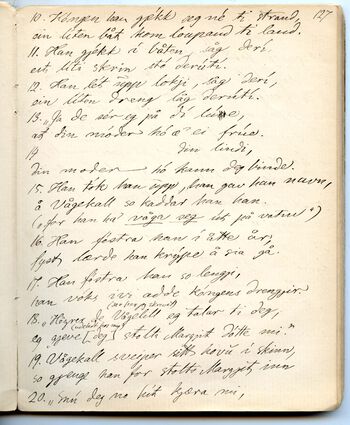 10. Kongen han gjekk seg ne ti strand, 127
ein liten båt kom loupand ti land.
11. Han gjekk i båten, såg deri,
eit lite skrin sto deruti.
12. Han let upp lokji, såg deri,
ein liten dreng låg deruti.
13. "Ja de sér eg på di
at din moder hó æ ei frúe.
14 din lindi,
din moder hó kunn deg binde.
15. Han tok han upp, han gav han navn,
å Vågekall so kaddar han han.
(: for han ha' våga seg ut på vatni *)
16. Han fostra han i åtte år,
fyst lærde han krype å sia gå.
17. Han fostra han so lengji,
han voks ivi adde kongens drengjir.
18. "Höyrer du Vågelill eg talar ti deg,
eg gjeve [deg] stolt Margjit dótte mi."
19. Vågekall sveiper sitt hovú i skinn,
so gjenge han for stolt Margjit inn
20. "nú deg no hit kjæra mi,